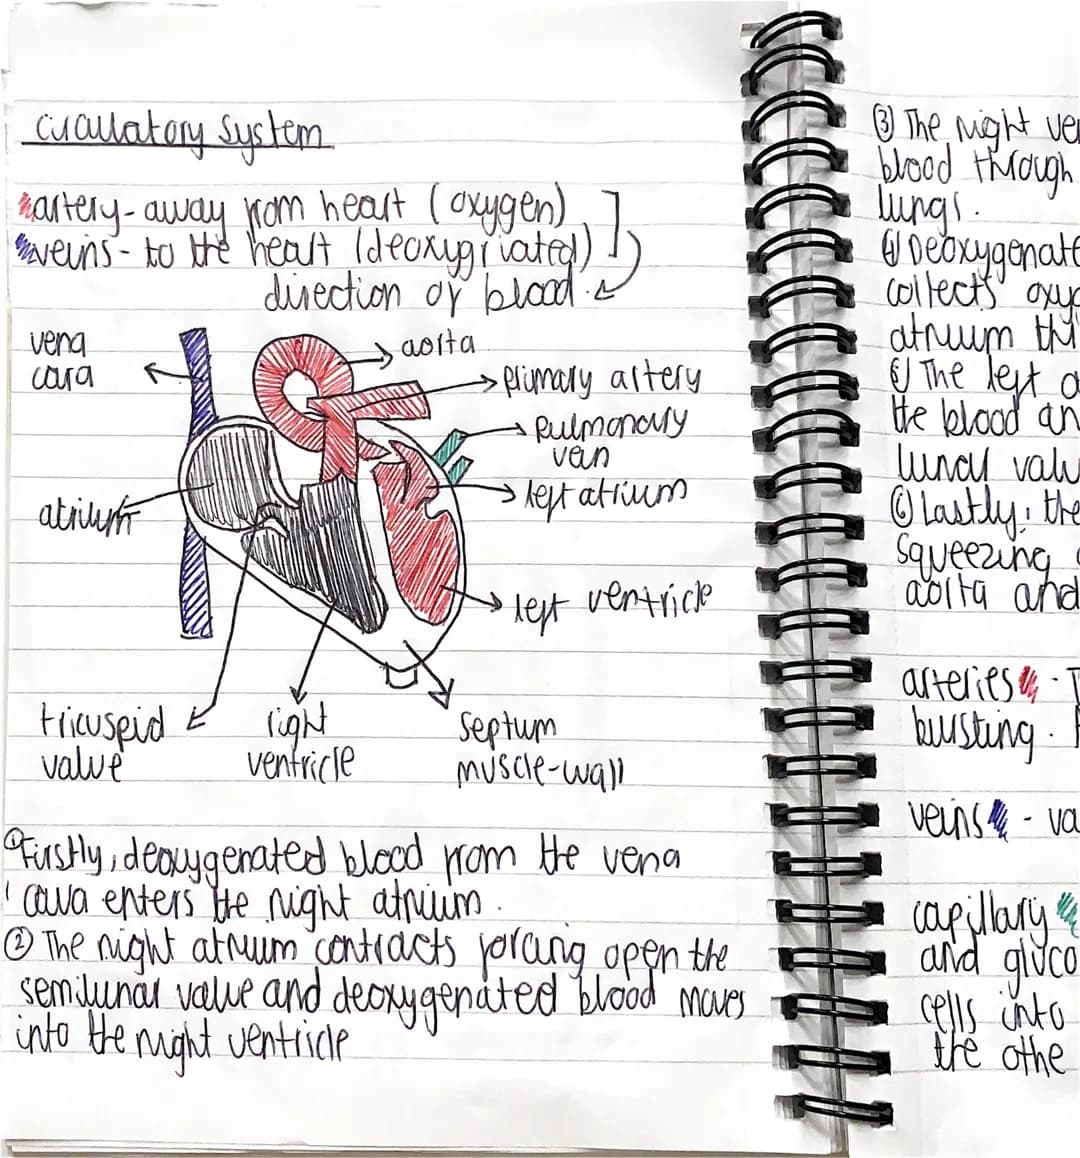 circulatory system
artery - away from heart (oxygen)
veins - to the heart (deoxygriated)
direction of blood.
vena
cava
aorta
primary artery
pulmonary
vein
left atrium
atrium
left ventricle
tricuspid
valve
right
ventricle
septum
muscle-wall
① Firstly, deoxygenated blood from the vena
cava enters the right atrium.
② The right atrium contracts forcing open the
semilunar valve and deoxygenated blood moves
into the right ventricle
③ The right ve
blood through
lungs.
④ Deoxygenate
collects oxyg
atrium th
⑤ The left a
the blood an
lunar valv
⑥ Lastly, the
squeezing
aorta and
arteries - T
bursting.
veins - va
capillary
and gluco
cells into
the othe